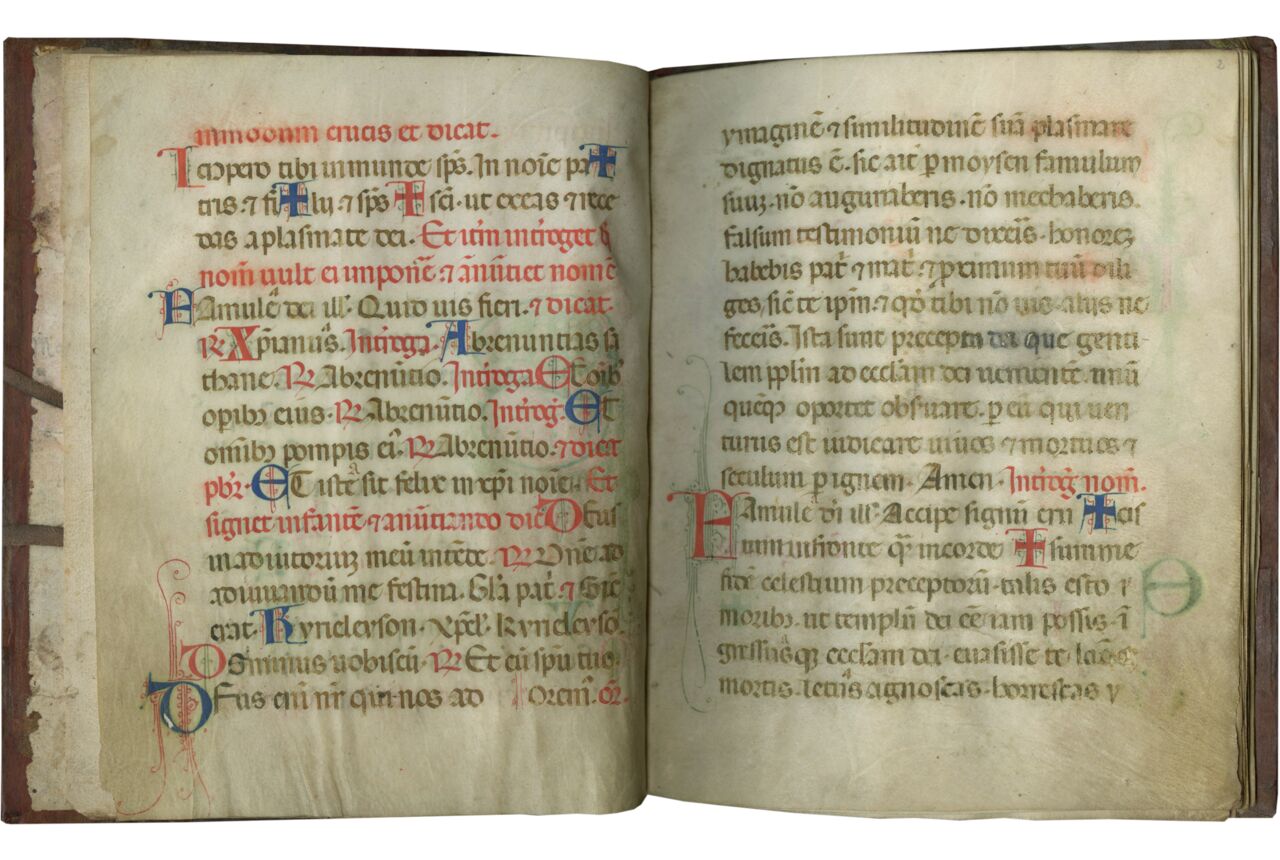 in modum crucis et dicat.
Inpero tibi inmunde sps̄. In noīe pa✝
tris ⁊ fi✝lij ⁊ sp̄s ✝ sc̄i. ut exeas ⁊ rece
das a plasmate dei. Et itm̄ int̄roget
nom̄ uult ei imponē ⁊ an̄untiet nomē
Famule dei ill'. Quid uis fieri. ⁊ dicat.
℞ Xp̄ianus. Int̄roga. Abrenuntias sa
thane. ℞ Abrenūtio. Int̄roga Et oīb'
opib; eius. ℞ Abrenūtio. Int̄rog̃. Et
omnib; pompis ei'. ℞ Abrenūtio. ⁊ dicat
pb̄r. Et iste sit felix in xp̄i noīe. Et
signet infantē ⁊ an̄untiando dic̄ Deus
in adiutorium meū intēde. ℞ Dn̄e ad
adiuuandū me festina. Gl̄a pat̄. ⁊ Sic
erat. Kyrieleyson. Xp̄el'. Kyrieleyso.
Dominus uobiscū. ℞ Et cū spū tuo.
Deus cui nr̄ qui nos ad orem'. or̄.
2
ymaginē ⁊ similitudinē suā plasmare
dignatus ē. sic ait p moysen famulum
suum. nō auguraberis. nō mechaberis.
falsum testimoniū ne dixeris. honorem
habebis pat̄ ⁊ mat̄. ⁊ proximum tuū dili
ges. sic̄ te ip̄m. ⁊ qd̄ tibi nō uis. aliis ne
feceris. Ista sunt precepta dei que genti
lem pplm̄ ad eccl̄am dei uenientē. unū
quēq; oportet obsuare. p eū qui uen
turus est iudicare uiuos ⁊ mortuos ⁊
seculum p ignem. Amen. Int̄rog̃ nom̄.
Famule dī ill'. Accipe signū cru ✝ cis
tum in fronte qm̄ in corde ✝ summe
fidē celestium preceptorū. talis esto ī
morib;. ut templū dei eē iam possis. ī
gressusq; eccl̄am dei. euasisse te laqueos
mortis. letus agnoscas. horrescas y